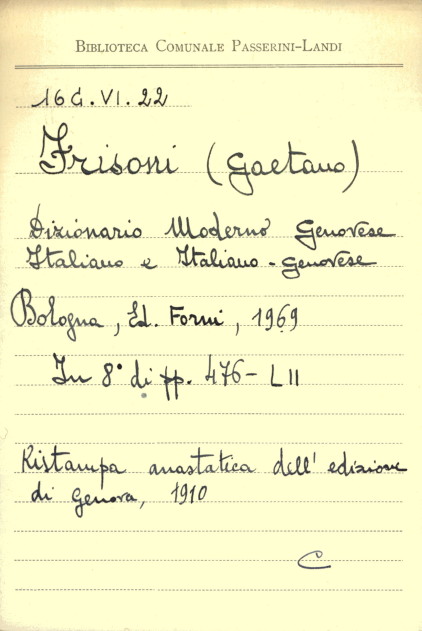 BIBLIOTECA COMUNALE PASSERINI-LANDI
16G.VI.22
Frisoni (Gaetano)
Dizionario Moderno Genovese
Italiano e Italiano-Genovese
Bologna, Ed. Forni, 1969
In 8° di pp. 476-LII
Ristampa anastatica dell'edizione
di Genova, 1910
C